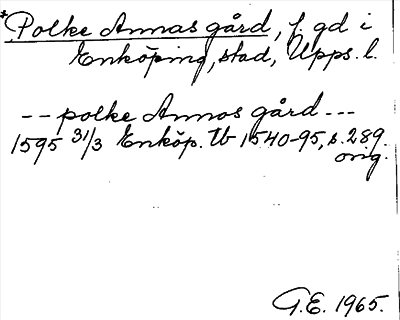 *Polke Annas gård, f. gd i
Enköping, stad, Upps. l.
-- polke Annos gård ---
1595 31/3 Enköp. tb 1540-95, s. 289.
orig.
G.E. 1965.